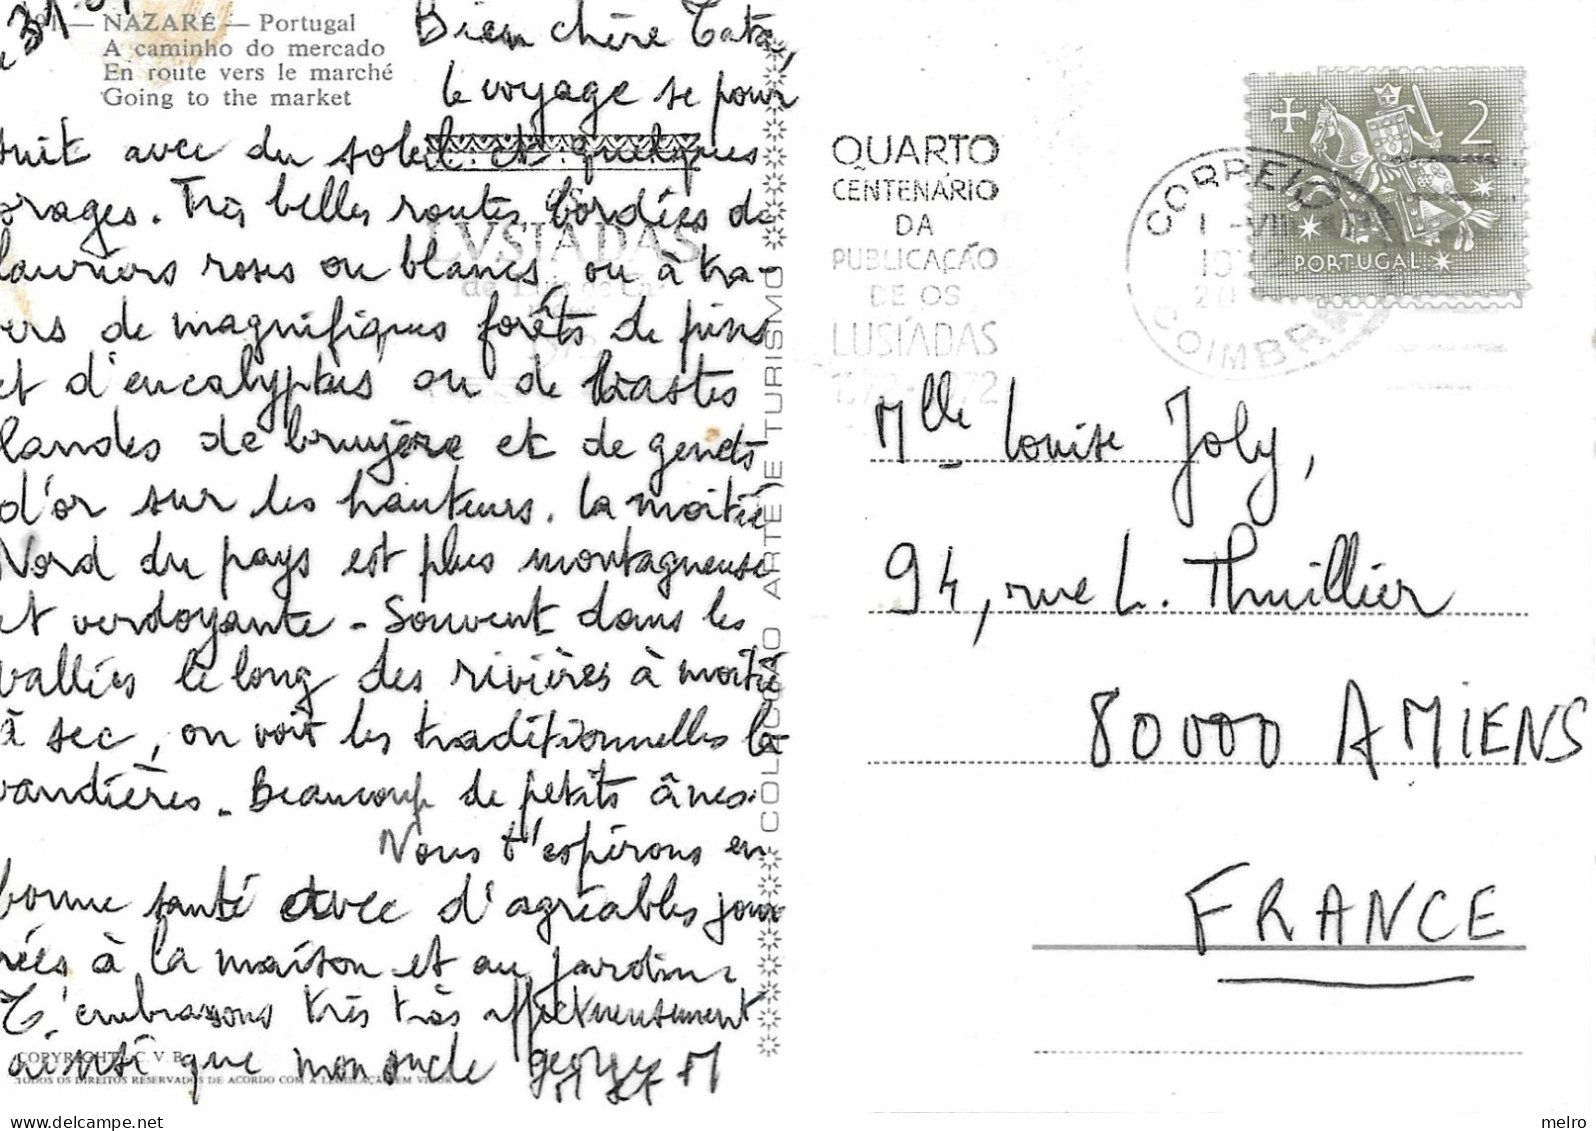 — NAZARÉ — Portugal
A caminho do mercado
En route vers le marché
Going to the market
31
Bien chère Tata,
le voyage se pour
suit avec du soleil et quelques
orages. Très belles routes bordées de
lauriers roses ou blancs ou à tra-
vers de magnifiques forêts de pins
et d'eucalyptus ou de vastes
landes de bruyère et de genêts
d'or sur les hauteurs. La moitié
Nord du pays est plus montagneuse
et verdoyante - Souvent dans les
vallées le long des rivières à moitié
à sec, on voit les traditionnelles la
vandières. Beaucoup de petits ânes.
Nous t'espérons en
bonne santé avec d'agréables jour
nées à la maison et au jardin.
T'embrassons très très affectueusement
ainsi que mon oncle georges
COPYRIGHT C. V. B.
TODOS OS DIREITOS RESERVADOS DE ACORDO COM A LEGISLAÇÃO EM VIGOR
LVSIADAS
COLECÇÃO ARTE E TURISMO
QUARTO
CENTENÁRIO
DA
PUBLICAÇÃO
DE OS
LUSÍADAS
1572-1972
CORREIOS
1 -VIII
20
COIMBRA
2
PORTUGAL
Mlle Louise Joly,
94, rue L. Thuillier
80000 AMIENS
FRANCE
melro